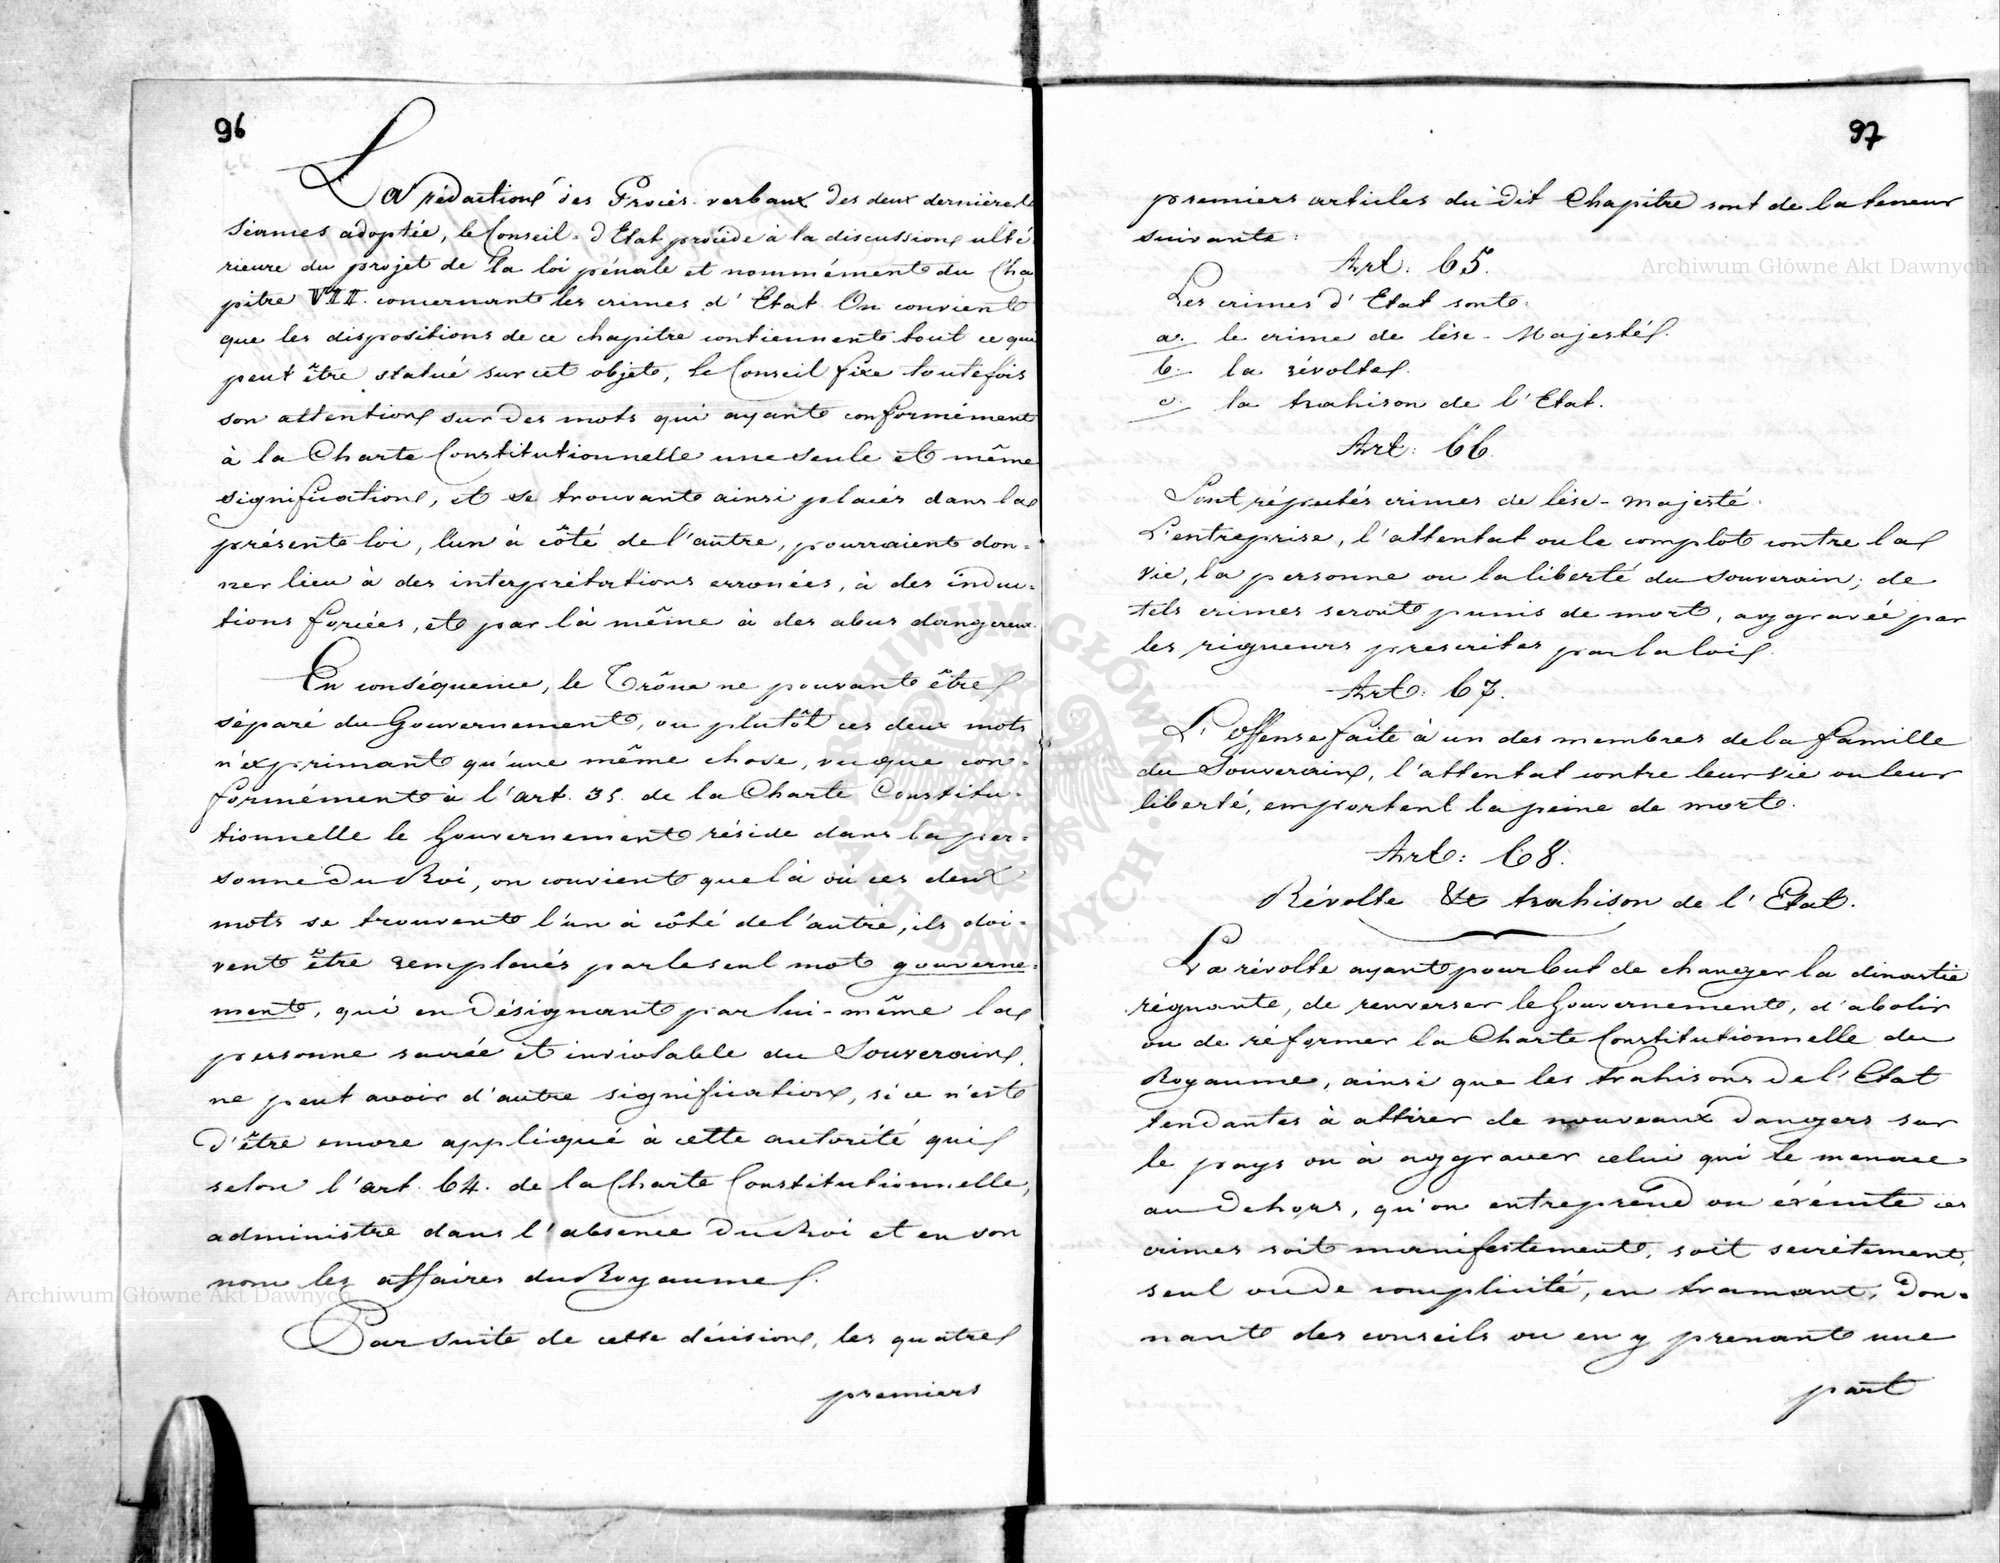 96
La rédaction des Procès-verbaux des deux dernières
Séances adoptée, le Conseil-d'Etat procède à la discussion ulté-
rieure du projet de la loi pénale et nommément du Cha
pitre VII. concernant les crimes d'Etat. On convient
que les dispositions de ce chapitre contiennent tout ce qui
peut être statué sur cet objet, le Conseil fixe toutefois
son attention sur des mots qui ayant conformément
à la Charte Constitutionnelle une seule et même
signification, et se trouvant ainsi placés dans la
présente loi, l'un à côté de l'autre, pourraient don-
ner lieu à des interprétations erronées, à des induc-
tions forcées, et par là même à des abus dangereux.
En conséquence, le Trône ne pouvant être
séparé du Gouvernement, ou plutôt ces deux mots
n'exprimant qu'une même chose, vu que con-
formément à l'art. 35. de la Charte Constitu-
tionnelle le Gouvernement réside dans la per-
sonne du Roi, on convient que là où ces deux
mots se trouvent l'un à côté de l'autre, ils doi-
vent être remplacés par le seul mot gouverne-
ment, qui en désignant par lui-même la
personne sacrée et inviolable du Souverain,
ne peut avoir d'autre signification, si ce n'est
d'être encore appliqué à cette autorité qui
selon l'art. 64. de la Charte Constitutionnelle,
administre dans l'absence du Roi et en son
nom les affaires du Royaume.
Par suite de cette décision, les quatre
premiers
97
premiers articles du dit Chapitre sont de la teneur
suivante:
Art: 65.
Les crimes d'Etat sont:
a. le crime de lèse-Majesté.
b. la révolte.
c. la trahison de l'Etat.
Art: 66.
Sont réputés crimes de lèse-majesté:
L'entreprise, l'attentat ou le complot contre la
vie, la personne ou la liberté du Souverain; de
tels crimes seront punis de mort, aggravée par
les rigueurs prescrites par la loi.
Art: 67.
L'offense faite à un des membres de la famille
du Souverain, l'attentat contre leur vie ou leur
liberté, emportent la peine de mort.
Art: 68.
Révolte & trahison de l'Etat.
La révolte ayant pour but de changer la dinastie
régnante, de renverser le Gouvernement, d'abolir
ou de réformer la Charte Constitutionnelle du
Royaume, ainsi que les trahisons de l'Etat
tendantes à attirer de nouveaux dangers sur
le pays ou à aggraver celui qui le menace
au dehors, qu'on entreprend ou éxécute ces
crimes soit manifestement, soit secrètement,
seul ou de complicité, en tramant, don-
nant des conseils ou en y prenant une
part
Archiwum Główne Akt Dawnych
Archiwum Główne Akt Dawnych
ARCHIWUM GŁÓWNE AKT DAWNYCH